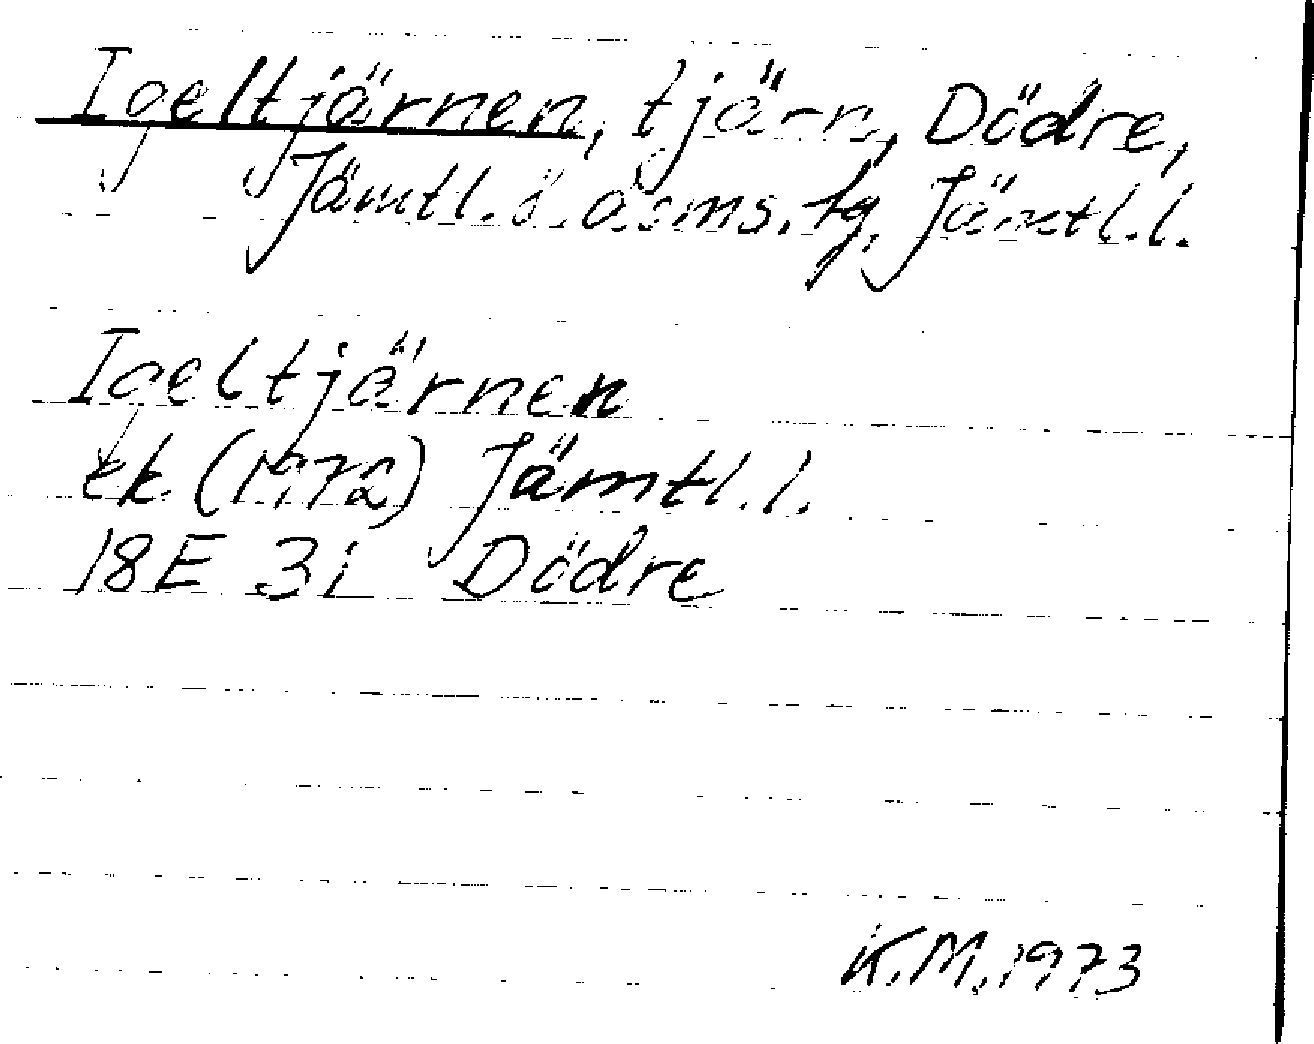 Igeltjärnen, tjärn, Dödre,
Jämtl. ö. doms. tg, Jämtl.l.
Igeltjärnen
ek (1972) Jämtl.l.
18E 3i Dödre
K.M. 1973